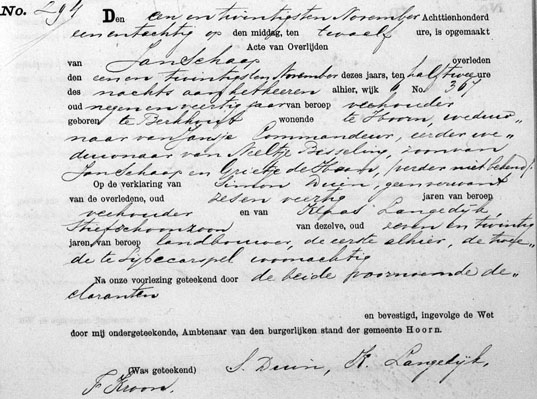 No. 294
Den een en twintigsten November Achttienhonderd
een en tachtig op den middag, ten twaalf ure, is opgemaakt
Acte van Overlijden
van Jan Schaap overleden
den een en twintigsten November dezes jaars, ten half twee ure
des nachts aan het heeren alhier, wijk 6 No. 367
oud negen en veertig jaar van beroep veehouder
geboren te Berkhout wonende te Hoorn, weduw„
naar van Jansje Commandeur, eerder we„
duwnaar van Neeltje Besseling, zoon van
Jan Schaap en Grietje de Haan, (verder niet bekend).
Op de verklaring van Simon Duin, geen verwant
van de overledene, oud zes en veertig jaren van beroep
veehouder en van Klaas Langedijk
stiefschoonzoon van dezelve, oud zeven en twintig
jaren, van beroep landbouwer, de eerste alhier, de twee„
de te Sijbecarspel woonachtig
Na onze voorlezing geteekend door de beide voornoemde de„
claranten
en bevestigd, ingevolge de Wet
door mij ondergeteekende, Ambtenaar van den burgerlijken stand der gemeente Hoorn.
(Was geteekend) S. Duin, K. Langedijk,
F Kroon.